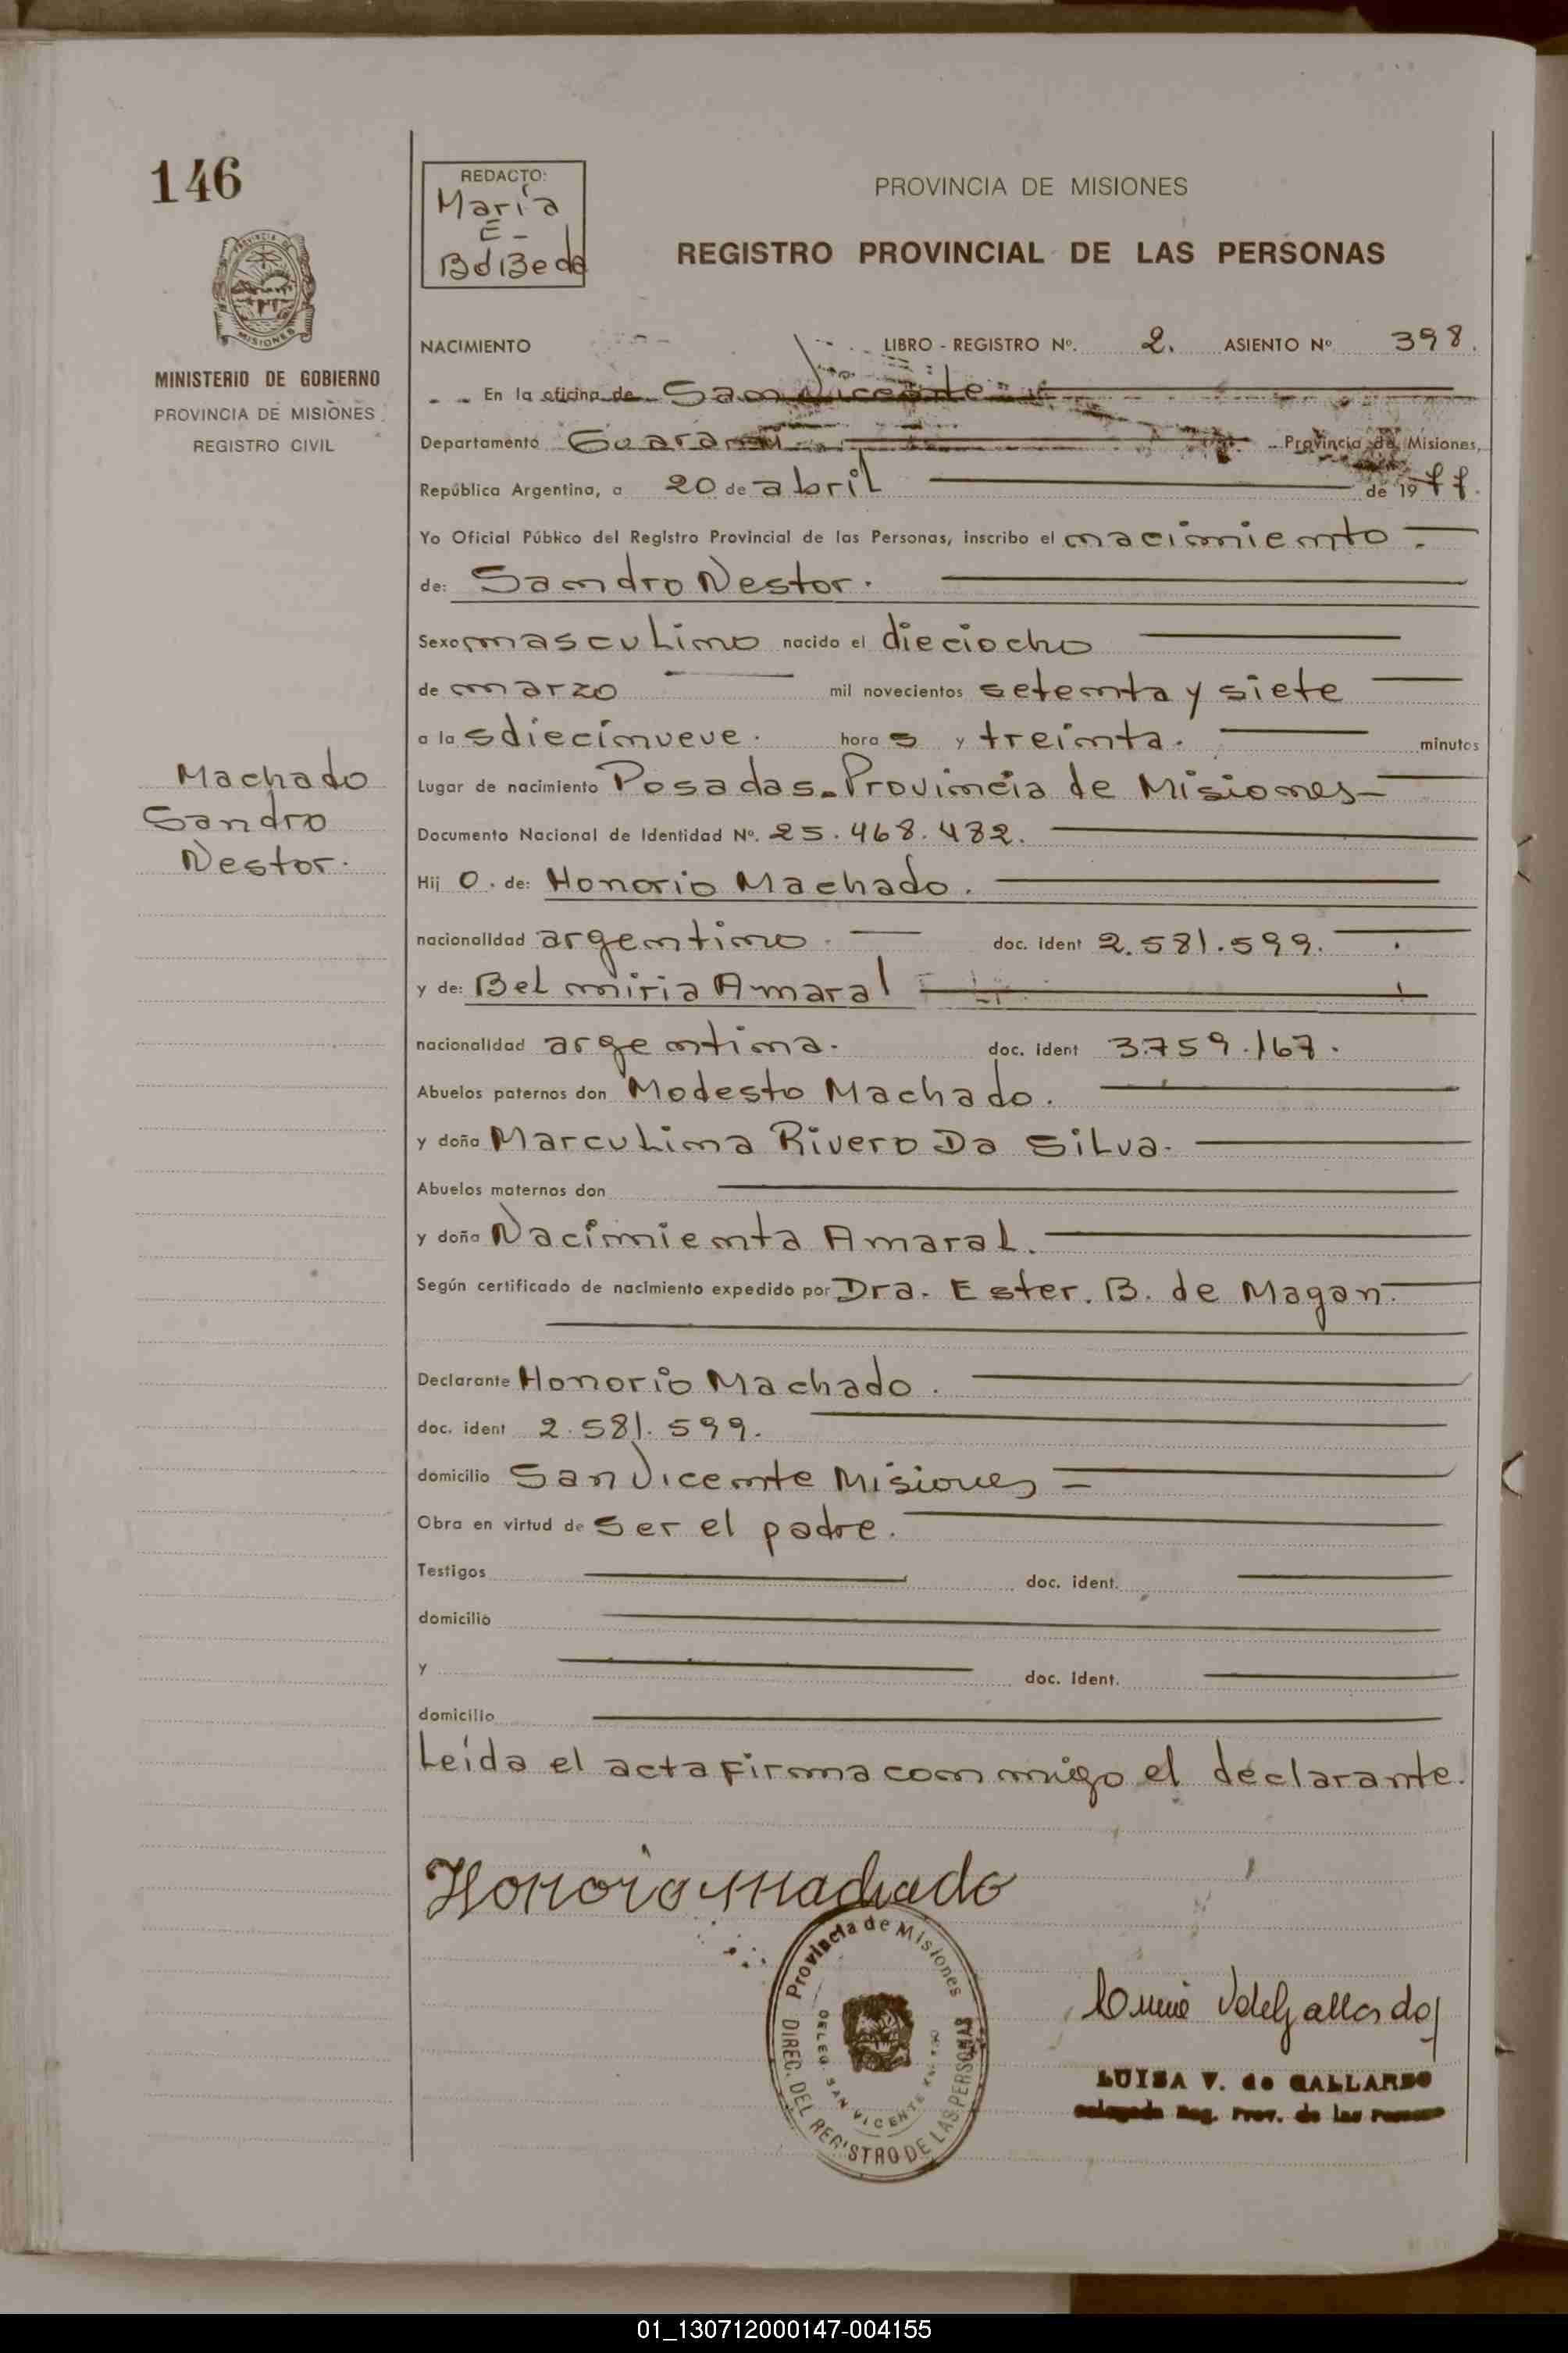 146
PROVINCIA DE
MISIONES
MINISTERIO DE GOBIERNO
PROVINCIA DE MISIONES
REGISTRO CIVIL
Machado
Sandro
Nestor.
REDACTO:
María
E-
PROVINCIA DE MISIONES
REGISTRO PROVINCIAL DE LAS PERSONAS
NACIMIENTO LIBRO - REGISTRO Nº. 2. ASIENTO Nº 398.
En la oficina de San Vicente
Departamento Guaraní Provincia de Misiones,
República Argentina, a 20 de abril de 1977.
Yo Oficial Público del Registro Provincial de las Personas, inscribo el nacimiento.
de: Sandro Nestor.
Sexo masculino nacido el dieciocho
de marzo mil novecientos setenta y siete
a las diecinueve. horas y treinta. minutos
Lugar de nacimiento Posadas. Provincia de Misiones
Documento Nacional de Identidad Nº. 25.468.482.
Hijo. de: Honorio Machado.
nacionalidad argentino. doc. ident 2.581.599.
y de: Belmiria Amaral
nacionalidad argentina. doc. ident 3.759.167.
Abuelos paternos don Modesto Machado.
y doña Marculina Rivero Da Silva.
Abuelos maternos don
y doña Nacimienta Amaral.
Según certificado de nacimiento expedido por Dra. Ester. B. de Magan.
Declarante Honorio Machado.
doc. ident 2.581.599.
domicilio San Vicente Misiones
Obra en virtud de ser el padre.
Testigos doc. ident.
domicilio
y doc. ident.
domicilio
Leída el acta firma con migo el declarante.
Honorio Machado
Provincia de Misiones
DIREC. DEL REGISTRO DE LAS PERSONAS
DELEG. SAN VICENTE
LUISA V. de GALLARDO
Delegada Reg. Prov. de las Personas
01_130712000147-004155